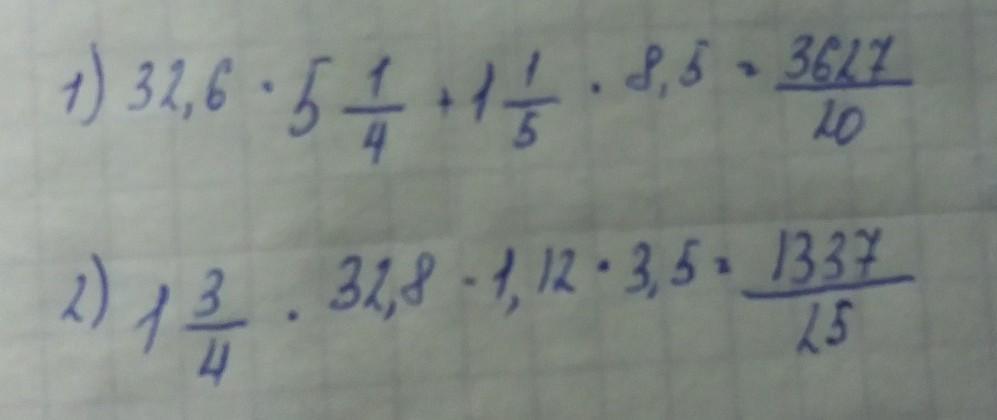 1) 32,6 · 5 1/4 + 1 1/5 · 8,5 = 3627/20
2) 1 3/4 · 32,8 - 1,12 · 3,5 = 1337/25